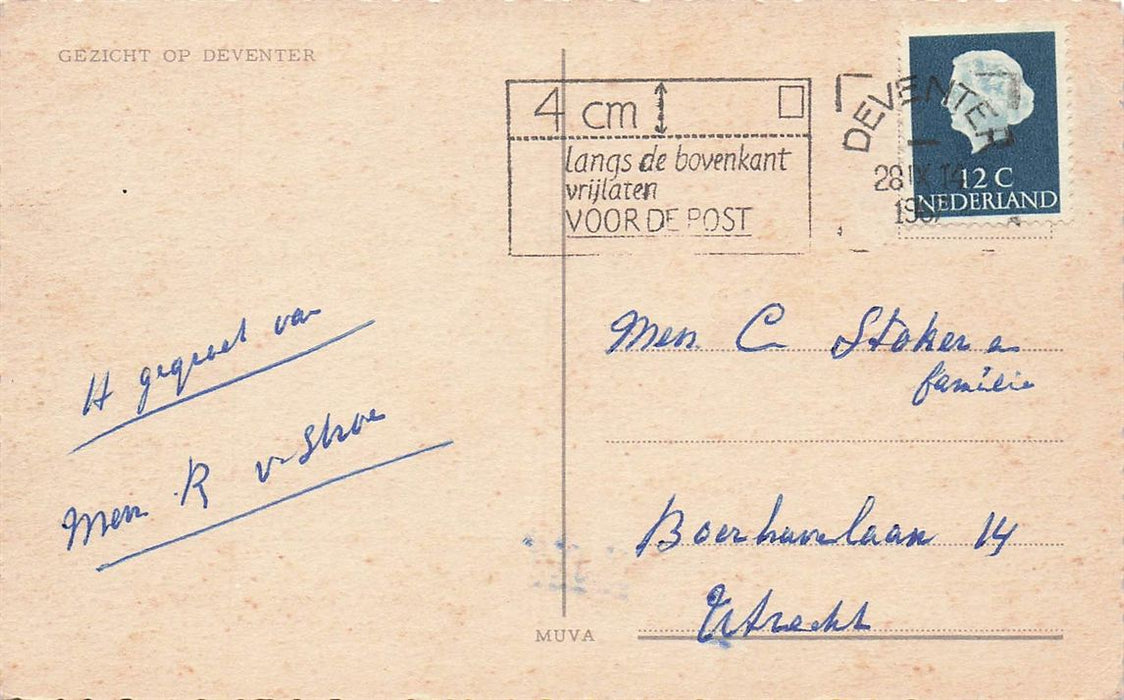 GEZICHT OP DEVENTER
4 cm
langs de bovenkant
vrijlaten
VOOR DE POST
DEVENTER
28 IX 14
12 C
NEDERLAND
H gegroet van
Men R v Stroe
Men C Stoker en
familie
Boerhavelaan 14
Utrecht
MUVA